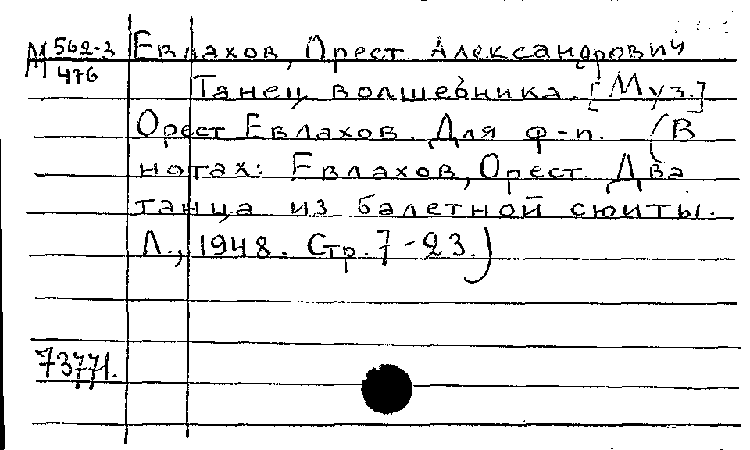 М 562-3 Евлахов, Орест Александрович
476
Танец волшебника. [Муз.]
Орест Евлахов. Для ф-п. (В
нотах: Евлахов, Орест. Два
танца из балетной сюиты.
Л., 1948. Стр. 7-23.)
73771.